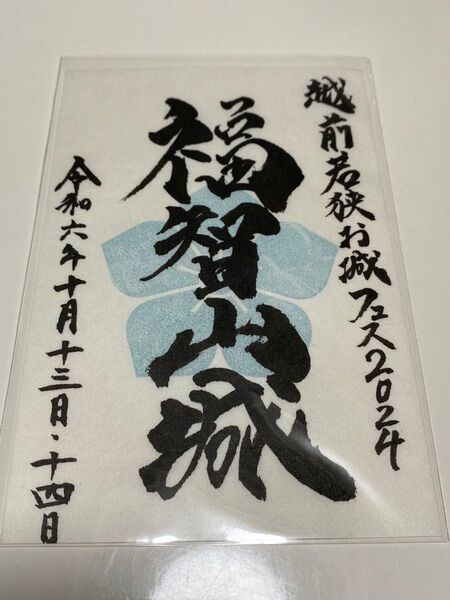 越前若狭お城フェス2024
福智山城
令和六年十月十三日・十四日